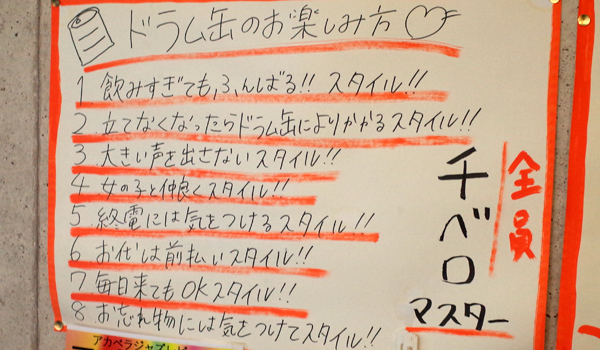 ドラム缶のお楽しみ方
1 飲みすぎても、ふんばる!! スタイル!!
2 立てなくなったらドラム缶によりかかるスタイル!!
3 大きい声を出さないスタイル!!
4 女の子と仲良くスタイル!!
5 終電には気をつけるスタイル!!
6 お代は前払いスタイル!!
7 毎日来てもOKスタイル!!
8 お忘れ物には気をつけてスタイル!!
全員
チベロ
マスター
アカペラジャズ